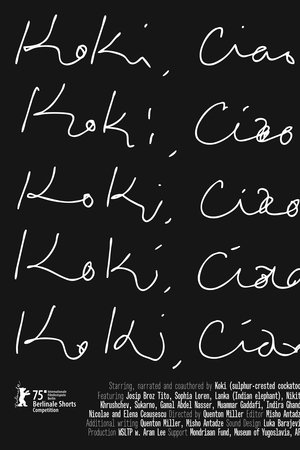 Koki, Ciao
Koki, Ciao
Koki, Ciao
Koki, Ciao
Koki, Ciao
75 Internationale Filmfestspiele Berlin
Berlinale Shorts
Competition
Starring, narrated and coauthored by Koki (sulphur-crested cockatoo
Featuring Josip Broz Tito, Sophia Loren, Lanka (Indian elephant), Nikit
Khrushchev, Sukarno, Gamal Abdel Nasser, Muammar Gaddafi, Indira Ghand
Nicolae and Elena Ceaușescu Directed by Quenton Miller Editor Misho Antadz
Additional writing Quenton Miller, Misho Antadze Sound Design Luka Barajev
Production WSLTP w. Aran Lee Support Mondriaan Fund, Museum of Yugoslavia, AF